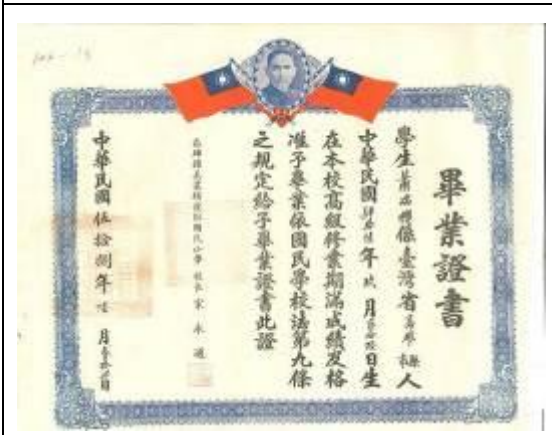 畢業證書
學生蕭 係臺灣省 縣市人
中華民國 年 玖 月 日生
在本校高級修業期滿成績及格
准予畢業依國民學校法第九條
之規定給予畢業證書此證
國民小學 校長 宋永通
中華民國伍拾捌年 陸 月 日